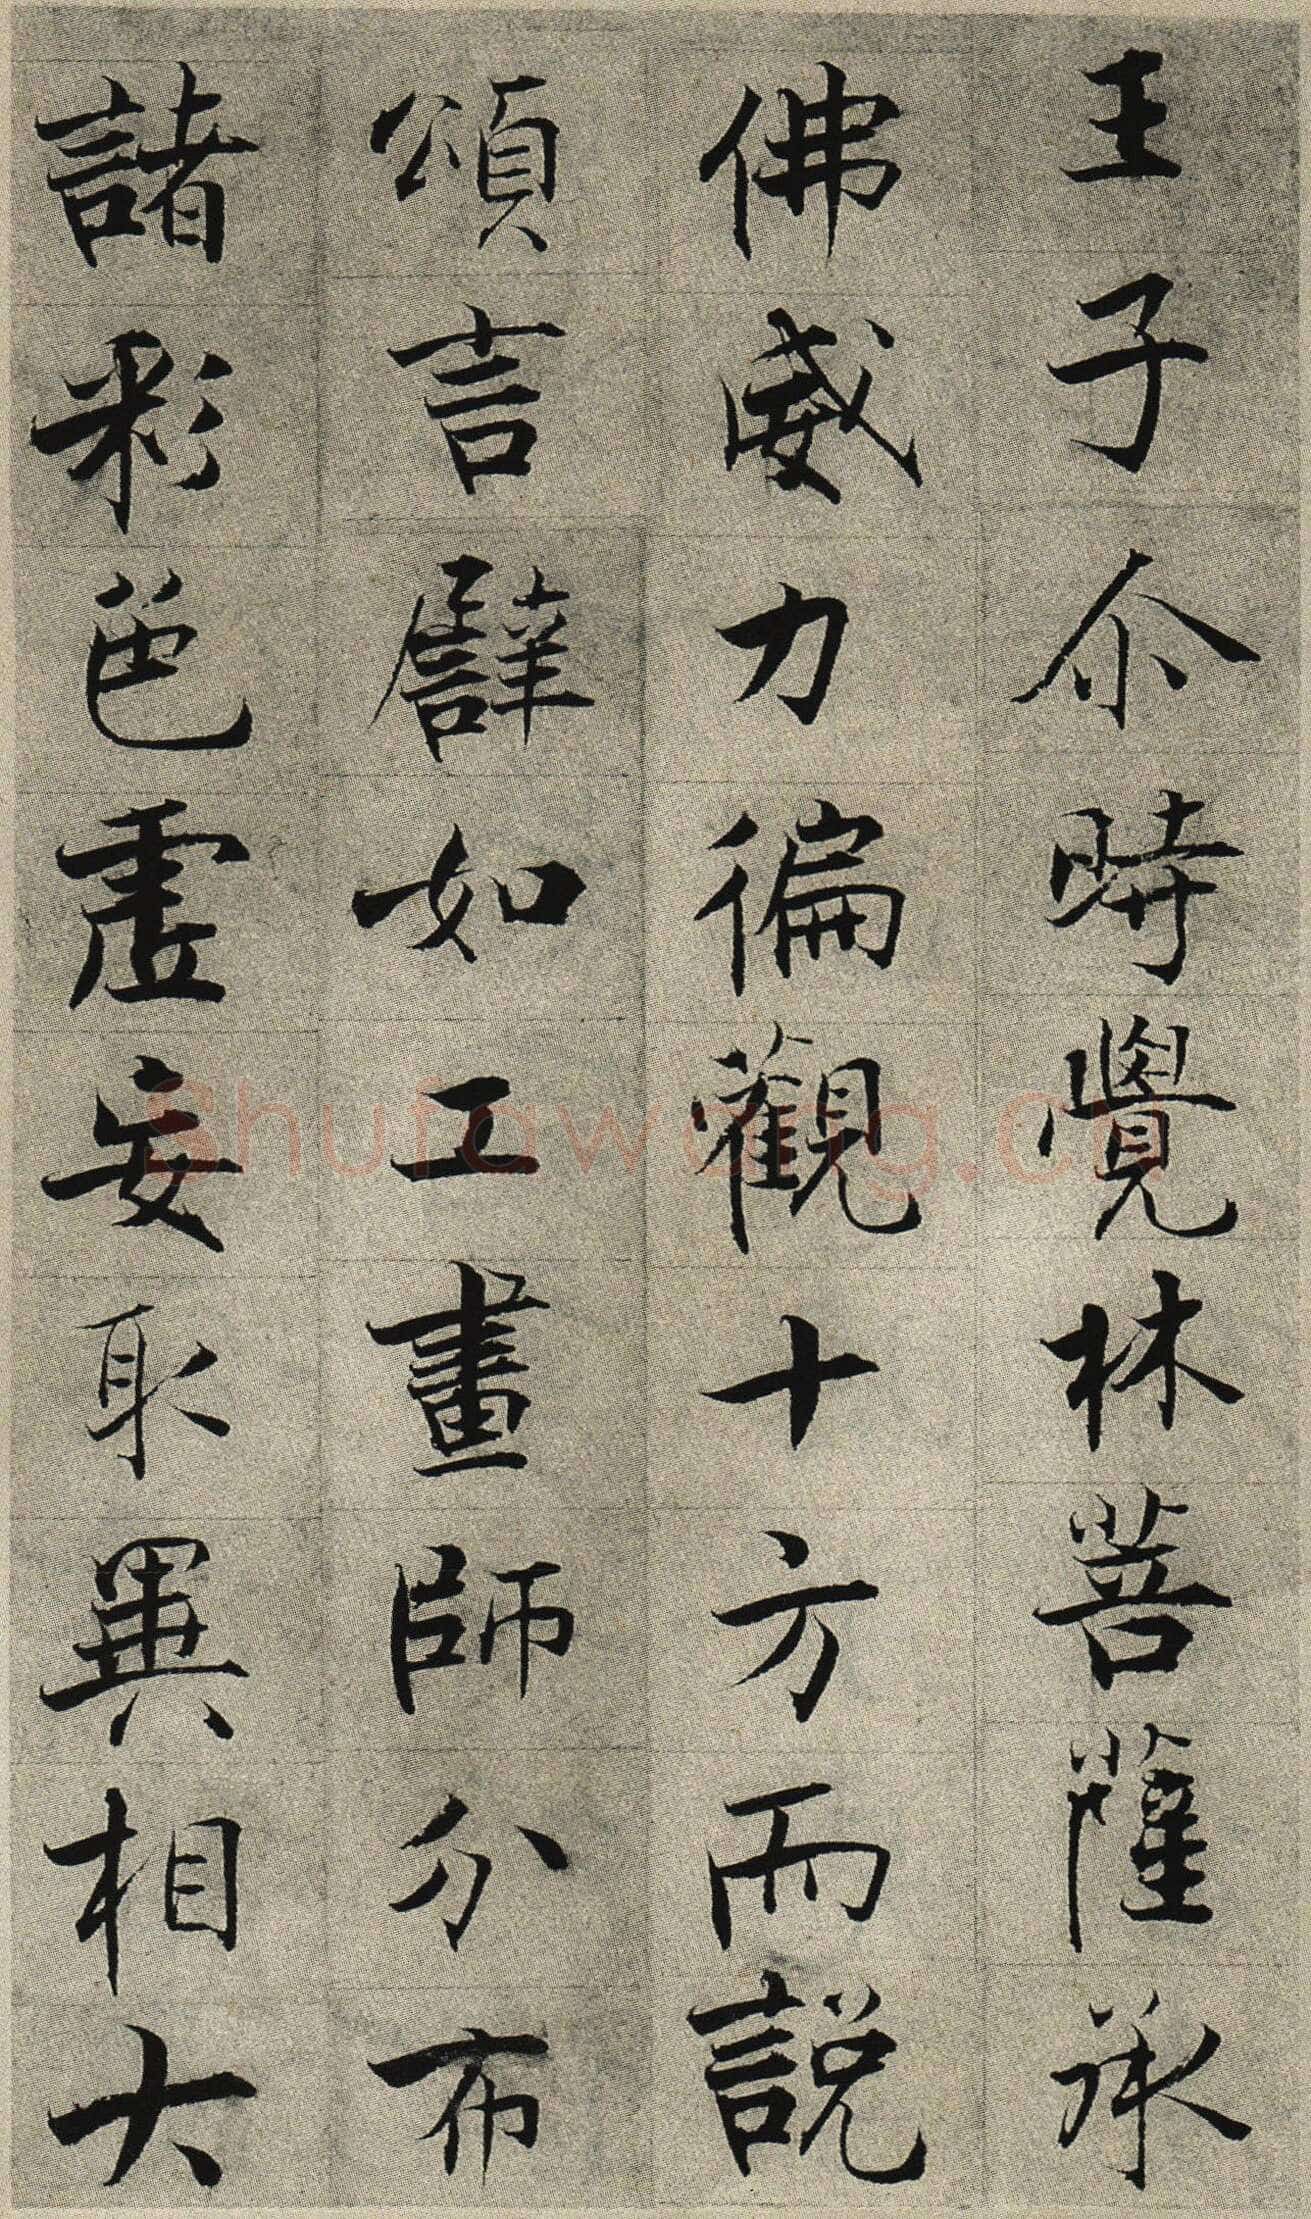 王子尒時覺林菩薩承
佛威力徧觀十方而說
頌言譬如工畫師分布
諸彩色虛妄取異相大
Shufawang.cn